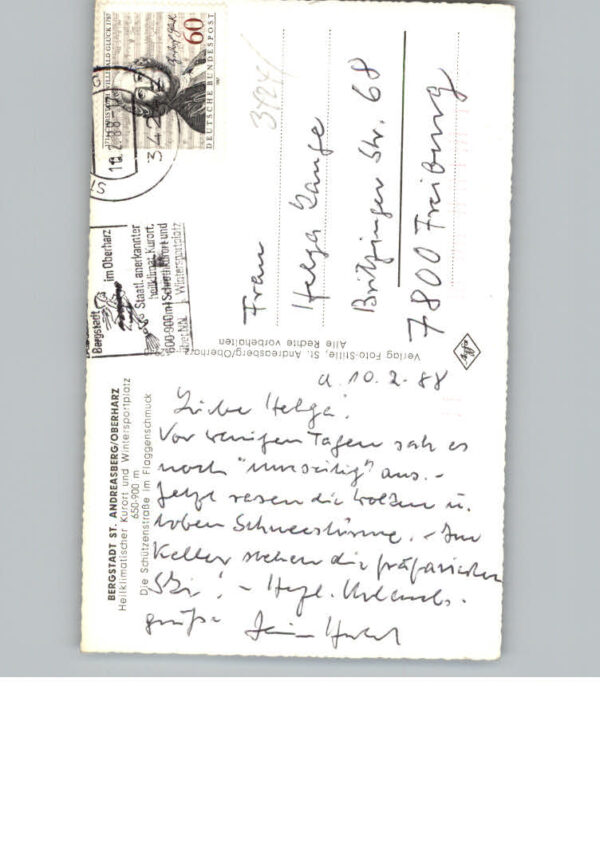 BERGSTADT ST. ANDREASBERG/OBERHARZ
Heilklimatischer Kurort und Wintersportplatz
650-900 m
Die Schützenstraße im Flaggenschmuck
d. 10.2.88
Liebe Helga!
Vor wenigen Tagen sah es
noch "umseitig" aus. -
Jetzt rasen die Wolken u.
toben Schneestürme. - Im
Keller stehen die präparierten
Ski! - Herzl. Urlaubs-
grüße
Verlag Foto-Stille, St. Andreasberg/Oberharz
Alle Rechte vorbehalten
Bergstadt
im Oberharz
Staatl. anerkannter
heilklimat. Kurort,
600-900m
Schroth-Kurort und
Wintersportplatz
10.2.88
342
CHRISTOPH WILLIBALD GLUCK 1787
60
DEUTSCHE BUNDESPOST
3424/
Frau
Helga Lange
Britzinger Str. 68
7800 Freiburg